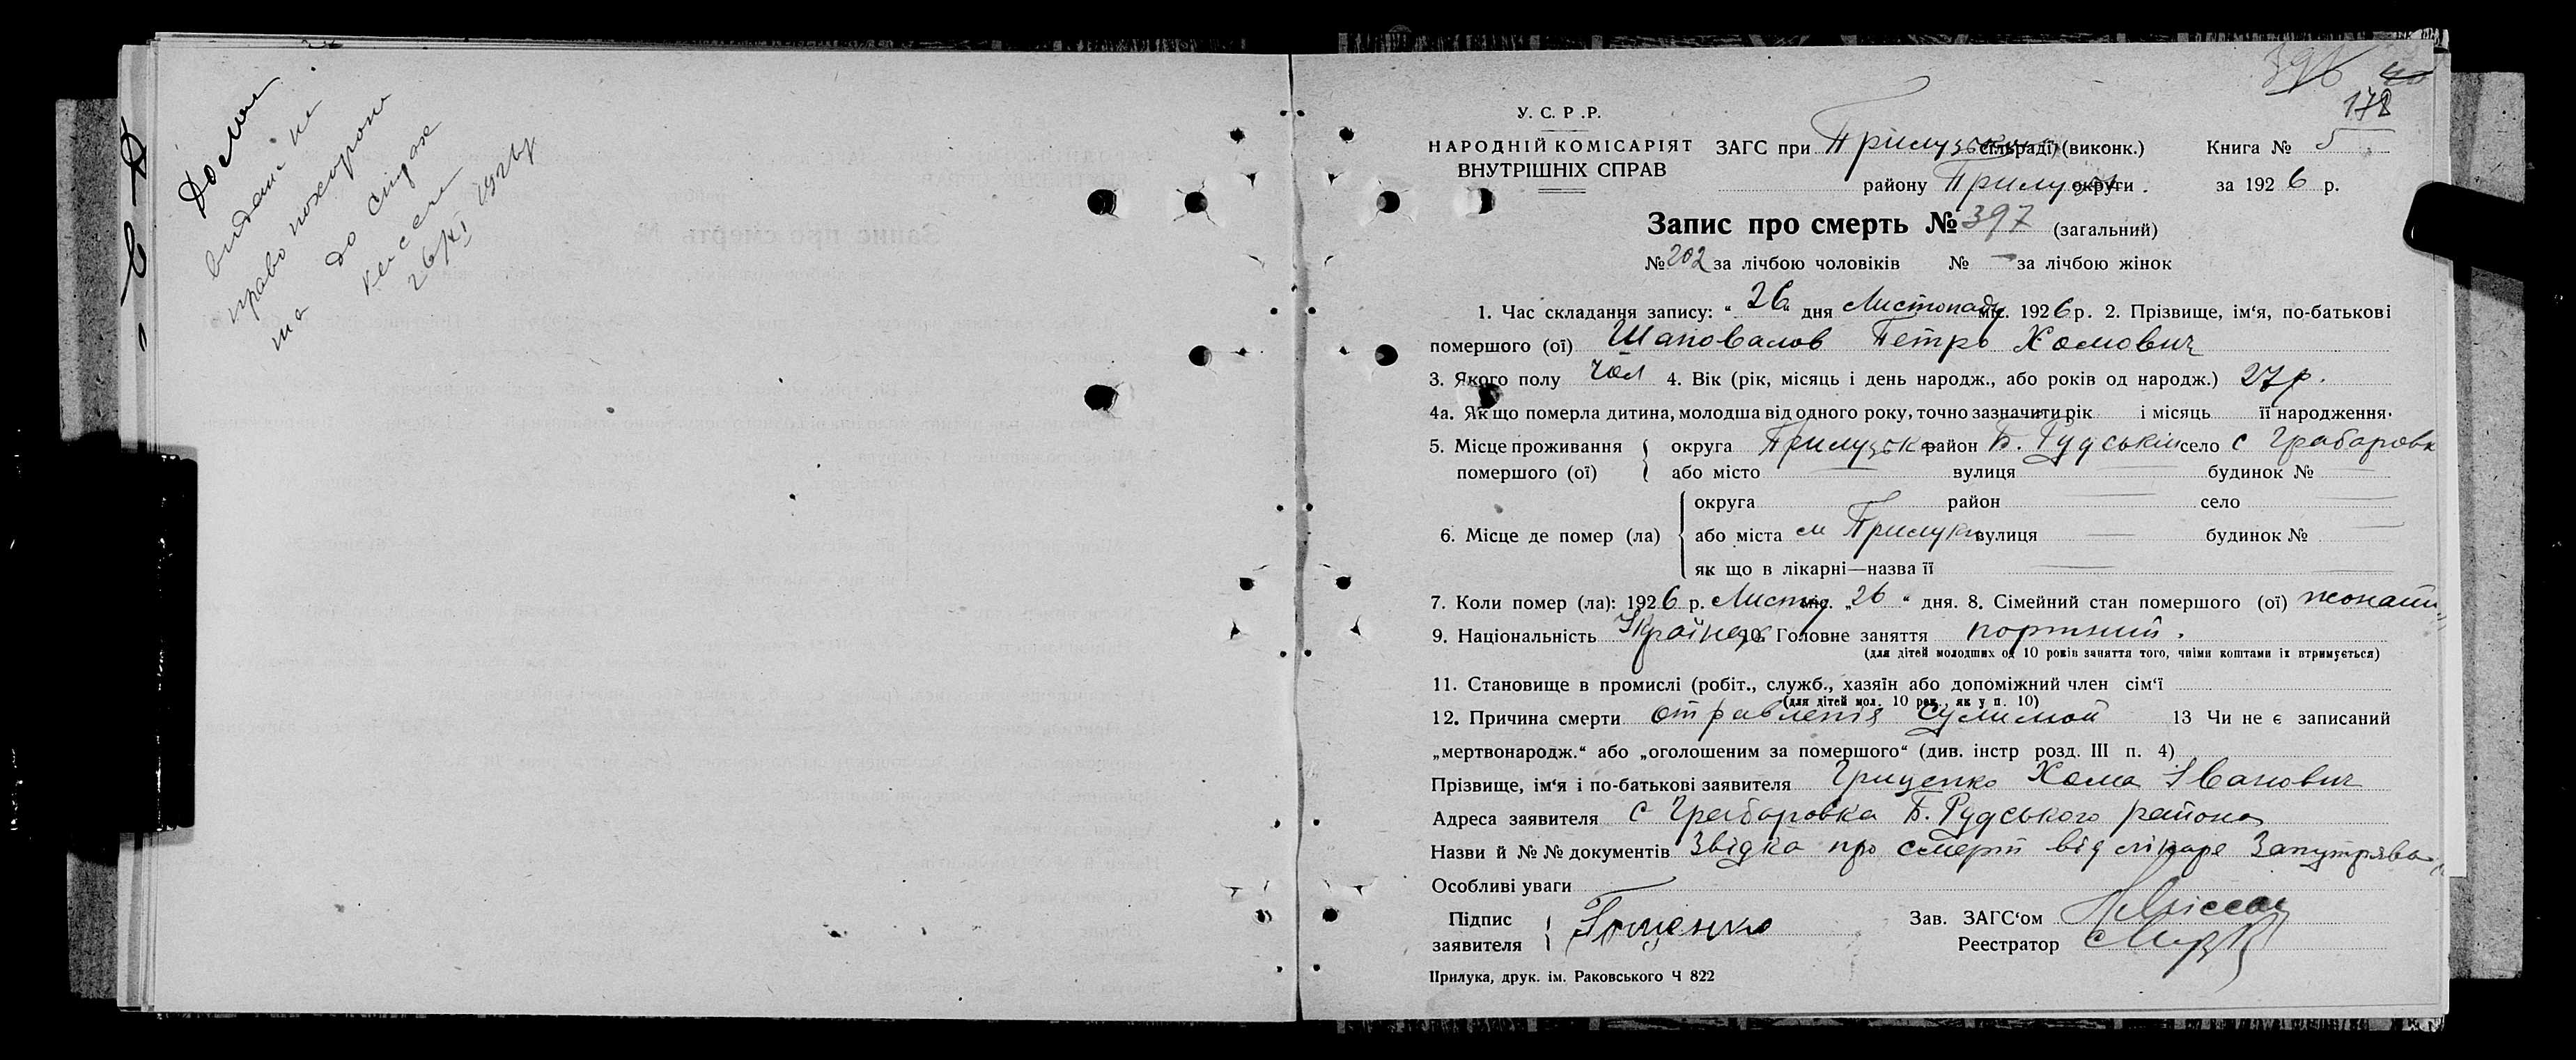 видане на
право похорони
на до
26/XI 1926 р
396
178
У. С. Р .Р.
НАРОДНІЙ КОМІСАРІЯТ
ВНУТРІШНІХ СПРАВ
ЗАГС при Прилуцьк сільраді (виконк.) Книга № 5
району Прилуцьк округи. за 1926 р.
Запис про смерть № 397 (загальний)
№ 202 за лічбою чоловіків № — за лічбою жінок
1. Час складання запису: “ 26 “ дня Листопаду міс. 1926 р. 2. Прізвище, ім‘я, по-батькові
помершого (ої) Шаповалов Петро Хомович
3. Якого полу Чол 4. Вік (рік, місяць і день народж., або років од народж.) 27 р.
4а. Як що померла дитина, молодша від одного року, точно зазначити рік і місяць її народження.
5. Місце проживання помершого (ої) { округа Прилуцька район Б. Рудський село с Грабаровк
або місто — вулиця — будинок № —
6. Місце де помер (ла) { округа — район — село —
або міста м Прилуки вулиця — будинок № —
як що в лікарні—назва її —
7. Коли помер (ла): 1926 р. Листоп міс. „ 26 “ дня. 8. Сімейний стан помершого (ої) жонатий
9. Національність Українец 10. Головне заняття портний.
(для дітей молодших од 10 років заняття того, чиїми коштами їх втримується)
11. Становище в промислі (робіт., служб., хазяїн або допоміжний член сім‘ї
(для дітей мол. 10 рок., як у п. 10)
12. Причина смерти отравленія сулимой 13 Чи не є записаний
„мертвонародж.“ або „оголошеним за помершого“ (див. інстр розд. III п. 4)
Прізвище, ім‘я і по-батькові заявителя Грищенко Хома Іванович
Адреса заявителя с Грабаровка Б. Рудського района
Назви й №№ документів Звідка про смерт від лікаре
Особливі уваги
Підпис заявителя { Грищенко
Зав. ЗАГС‘ом
Реестратор
Прилука, друк. ім. Раковського Ч 822